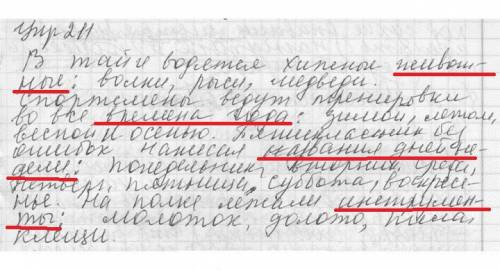 Упр 211
В тайге водятся хищные живот-
ные: волки, рыси, медведи.
Спортсмены ведут тренировки
во все времена года: зимой, летом,
весной и осенью. Пятиклассник без
ошибок написал названия дней не-
дели: понедельник, вторник, среда,
четверг, пятница, суббота, воскресе-
нье. На полке лежали инструмен-
ты: молоток, долото, пила,
клещи.